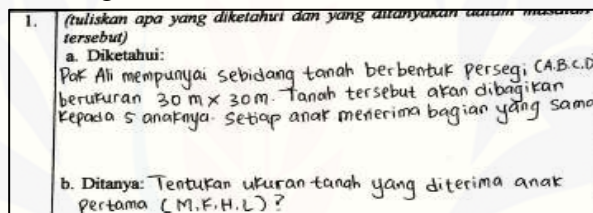 1. (tuliskan apa yang diketahui dan yang ditanyakan dalam masalah
tersebut)
a. Diketahui:
Pak Ali mempunyai sebidang tanah berbentuk persegi (A.B.C.D
berukuran 30 m x 30 m. Tanah tersebut akan dibagikan
kepada 5 anaknya. Setiap anak menerima bagian yang sama
b. Ditanya: Tentukan ukuran tanah yang diterima anak
pertama (M.F.H.L)?